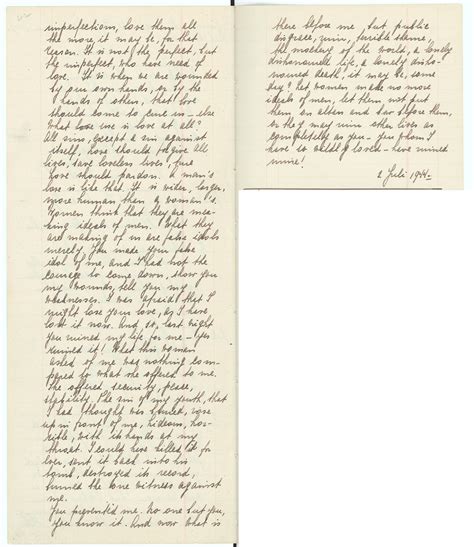 imperfections, love them all
the more, it may be, for that
reason. It is not the perfect, but
the imperfect, who have need of
love. It is when we are wounded
by our own hands, or by the
hands of others, that love
should come to cure us – else
what love use is love at all?
All sins, except a sin against
itself, love should forgive all
lives, save loveless lives, true
love should pardon. A man's
love is like that. It is wider, larger,
more human than a woman's.
Women think that they are ma-
king ideals of men. What they
are making of us are false idols
merely. You made your false
idol of me, and I had not the
courage to come down, show you
my wounds, tell you my
weaknesses. I was afraid that I
might lose your love, as I have
lost it now. And so, last night
you ruined my life for me – yes
ruined it! What this woman
asked of me was nothing com-
pared to what she offered to me.
She offered security, peace,
stability. The sin of my youth, that
I had thought was buried, rose
up in front of me, hideous, hor-
rible, with its hands at my
throat. I could have killed it for
ever, sent it back into its
tomb, destroyed its record,
burned the one witness against
me.
You prevented me. No one but you,
you know it. And now what is
there before me, but public
disgrace, ruin, terrible shame,
the mockery of the world, a lonely
dishonoured life, a lonely disho-
noured death, it may be, some
day? Let women make no more
ideals of men, let them not put
them on altars and bow before them,
or they may ruin other lives as
completely as you – you whom I
have so wildly loved – have ruined
mine!
2 Juli 1944